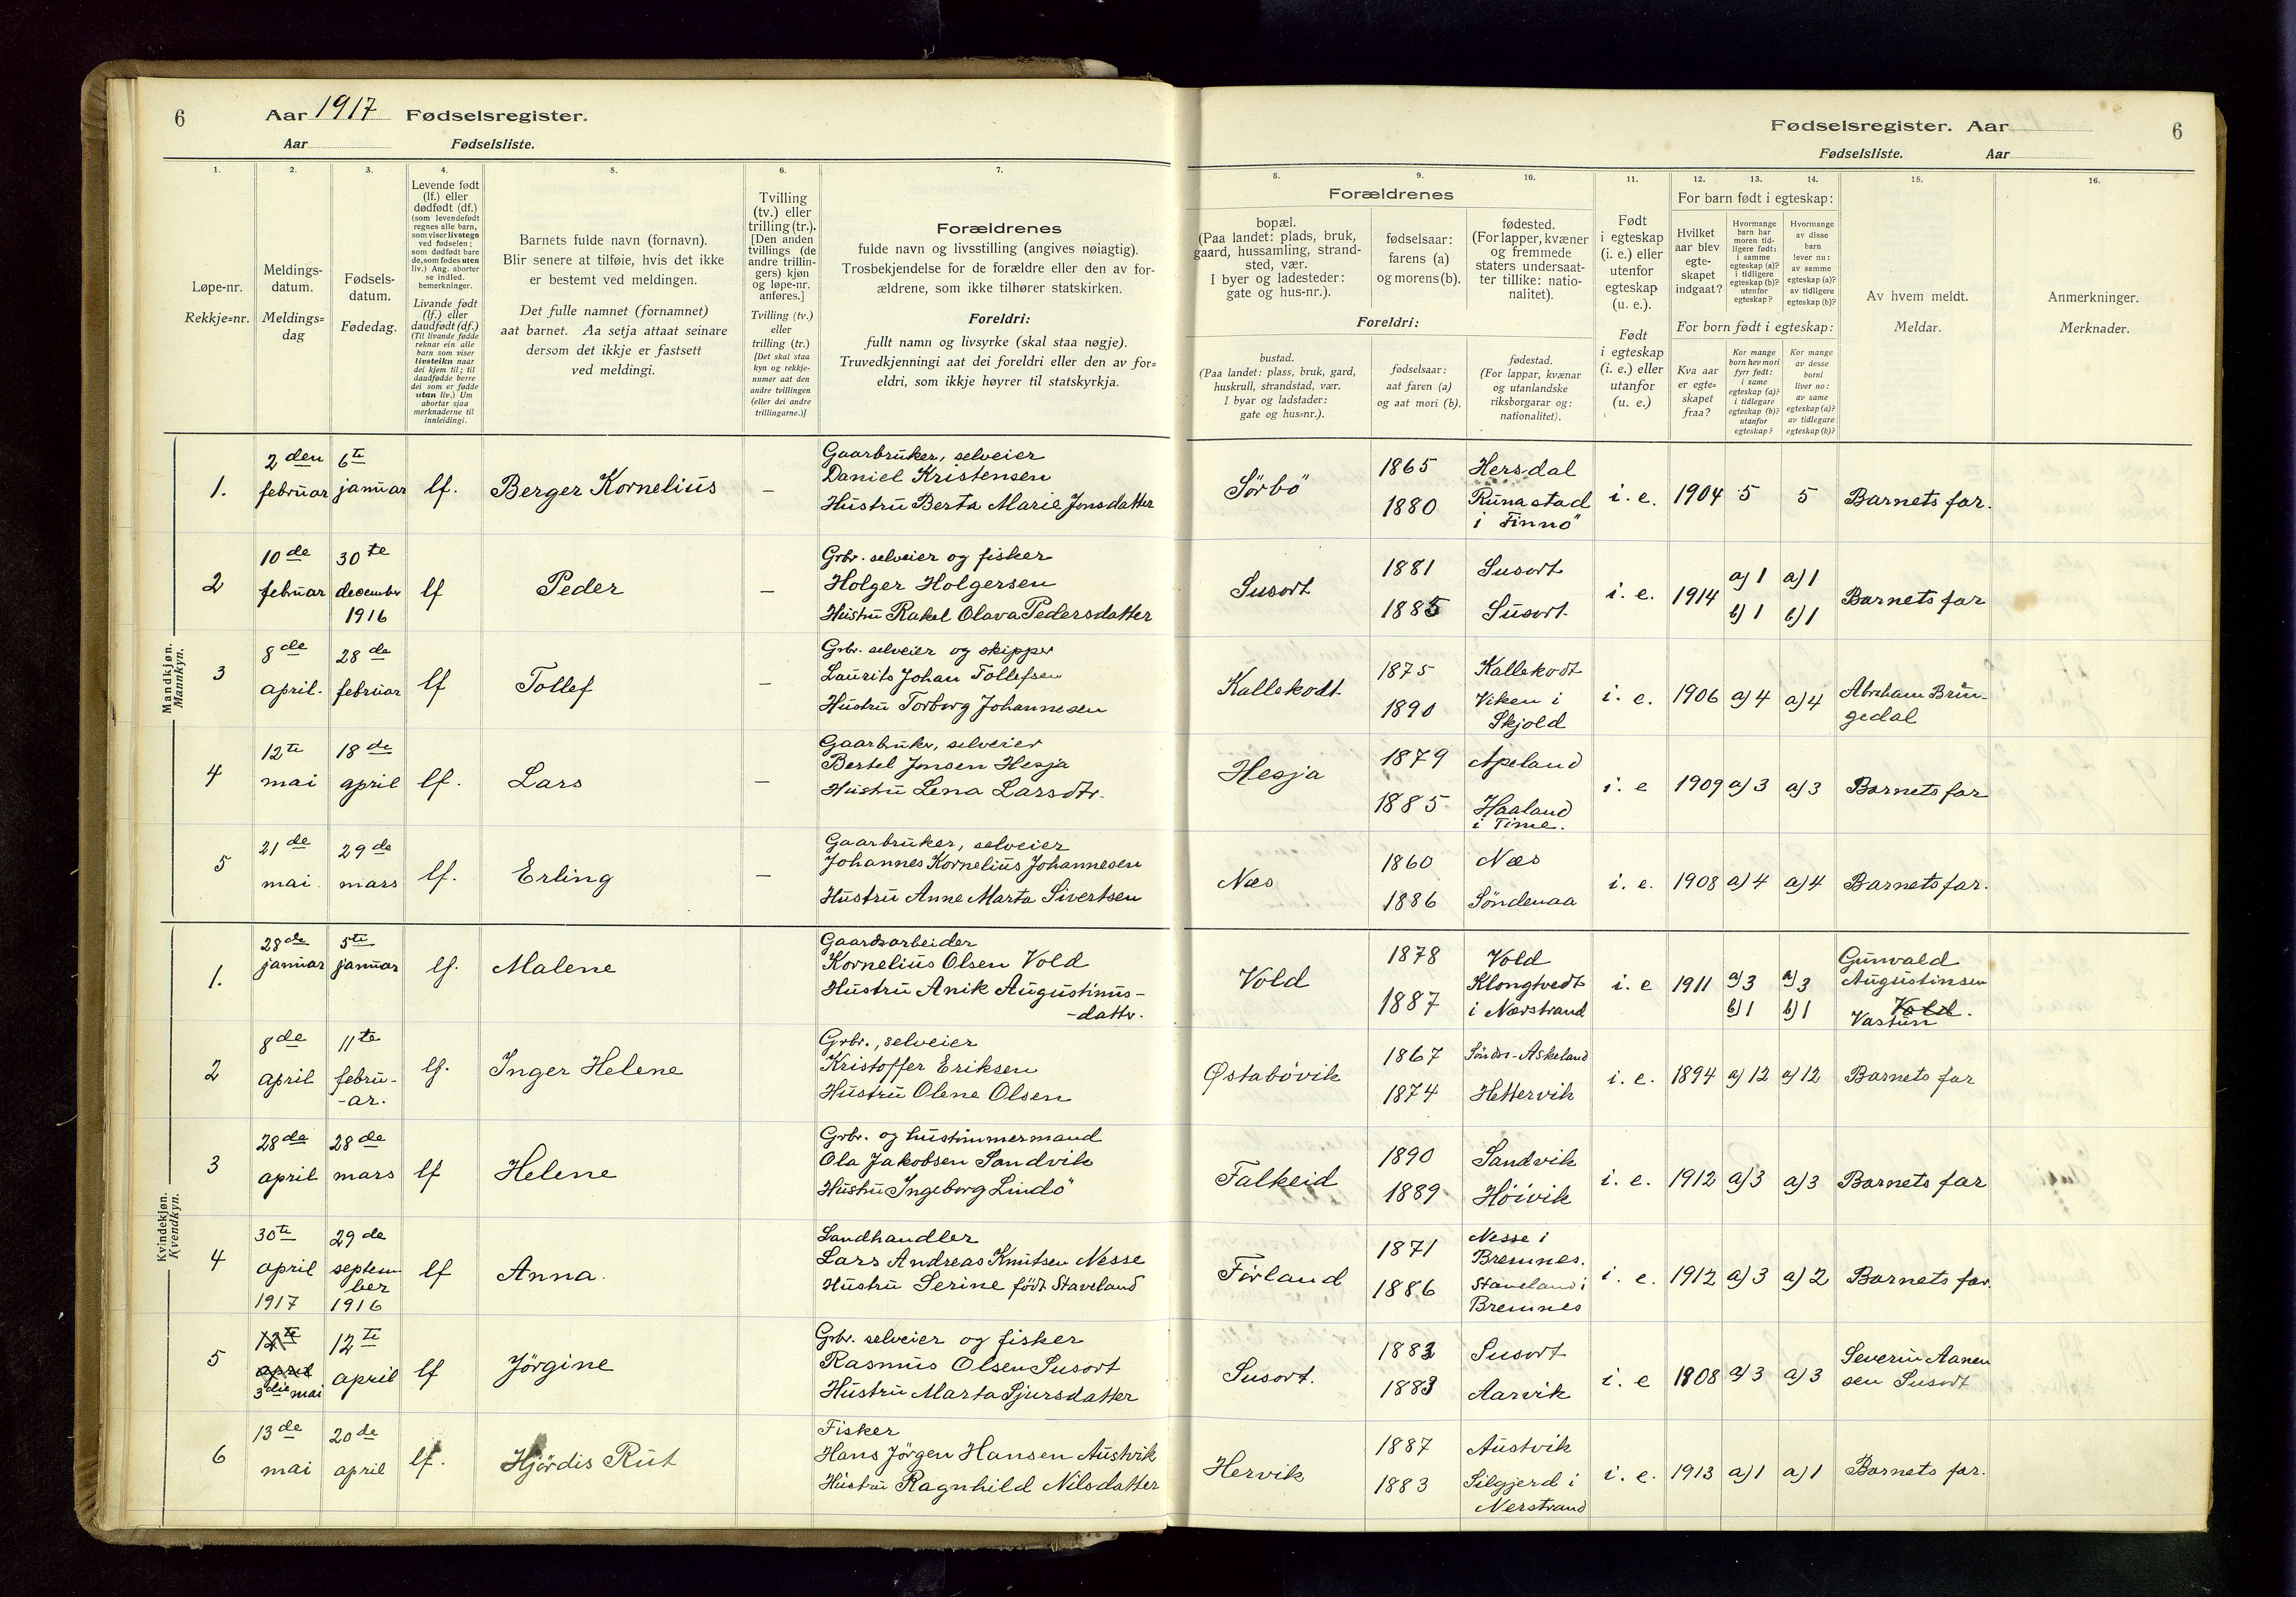 6
Aar 1917 Fødselsregister.
Aar Fødselsliste.
1.
2.
3.
4.
5.
6.
7.
Løpe-nr.
Rekkje=nr.
Meldings-
datum.
Meldings=
dag
Fødsels-
datum.
Fødedag.
Levende født
(lf.) eller
dødfødt (df.)
(som levendefødt
regnes alle barn,
som viser livstegn
ved fødselen;
som dødfødt bare
de, som fødes uten
liv.) Ang. aborter
se indled.
bemerkninger.
Livande født
(lf.) eller
daudfødt (df.)
(Til livande fødde
reknar ein alle
barn som viser
livsteikn naar
dei kjem til; til
daudfødde berre
dei som er fødde
utan liv.) Um
abortar sjaa
merknaderne til
innleidingi.
Barnets fulde navn (fornavn).
Blir senere at tilføie, hvis det ikke
er bestemt ved meldingen.
Det fulle namnet (fornamnet)
aat barnet. Aa setja attaat seinare
dersom det ikkje er fastsett
ved meldingi.
Tvilling
(tv.) eller
trilling (tr.).
[Den anden
tvillings (de
andre trillin-
gers) kjøn
og løpe-nr.
anføres.]
Tvilling (tv.)
eller
trilling (tr.)
[Det skal staa
kyn og rekkje-
numer aat den
andre tvillingen
(eller dei andre
trillingarne.)]
Forældrenes
fulde navn og livsstilling (angives nøiagtig).
Trosbekjendelse for de forældre eller den av for-
ældrene, som ikke tilhører statskirken.
Foreldri:
fullt namn og livsyrke (skal staa nøgje).
Truvedkjenningi aat dei foreldri eller den av for=
eldri, som ikkje høyrer til statskyrkja.
Mandkjøn.
Mannkyn.
1. 2den februar 6te januar lf. Berger Kornelius –
Gaarbruker, selveier
Daniel Kristensen
Hustru Berta Marie Jonsdatter
2 10de februar 30te december 1916 lf Peder –
Grbr. selveier og fisker
Holger Holgersen
Hustru Rakel Olava Pedersdatter
3 8de april. 28de februar lf Tollef –
Grbr. selveier og skipper
Laurits Johan Tollefsen
Hustru Torborg Johannesen
4 12te mai 18de april lf. Lars –
Gaarbruker, selveier
Bertel Jonsen Hesja
Hustru Lena Larsdtr.
5 21de mai 29de mars lf. Erling –
Gaarbruker, selveier
Johannes Kornelius Johannesen
Hustru Anne Marta Sivertsen
Kvindekjøn.
Kvendkyn.
1. 28de januar 5te januar lf. Malene
Gaardsarbeider
Kornelius Olsen Vold
Hustru Anik Augustinus-
-dattr.
2 8de april 11te febru-
-ar. lf. Inger Helene
Grbr., selveier
Kristoffer Eriksen
Hustru Olene Olsen
3 28de april 28de mars lf Helene
Grbr. og hustimmermand
Ola Jakobsen Sandvik
Hustru Ingeborg Lindö
4 30te april 1917 29de septem
ber 1916 lf Anna.
Landhandler
Lars Andreas Knutsen Nesse
Hustru Serine født Staveland
5 12te april 3die mai 12te april lf Jörgine
Grbr. selveier og fisker
Rasmus Olsen Susort
Hustru Marta Sjursdatter
6 13de mai 20de april lf. Hjördis Rut
Fisker
Hans Jörgen Hansen Austvik
Hustru Ragnhild Nilsdatter
Fødselsregister. Aar
6
Fødselsliste. Aar
8.
9.
10.
11.
12.
13.
14.
15.
16.
Forældrenes
bopæl.
(Paa landet: plads, bruk,
gaard, hussamling, strand-
sted, vær.
I byer og ladesteder:
gate og hus-nr.).
fødselsaar:
farens (a)
og morens (b).
fødested.
(For lapper, kvæner
og fremmede
staters undersaat-
ter tillike: natio-
nalitet).
Foreldri:
bustad.
(Paa landet: plass, bruk, gard,
huskrull, strandstad, vær.
I byar og ladstader:
gate og hus=nr.).
fødselsaar:
aat faren (a)
og aat mori (b).
fødestad.
(For lappar, kvænar
og utanlandske
riksborgarar og:
nationalitet).
Født
i egteskap
(i. e.) eller
utenfor
egteskap
(u. e.).
Født
i egteskap
(i. e.) eller
utanfor
(u. e.)
For barn født i egteskap:
Hvilket
aar blev
egte-
skapet
indgaat?
Hvormange
barn har
moren tid-
ligere født:
i samme
egteskap (a)?
i tidligere
egteskap (b)?
utenfor
egteskap?
Hvormange
av disse
barn
lever nu:
av samme
egteskap (a)?
av tidligere
egteskap (b)?
For born født i egteskap:
Kva aar
er egte=
skapet
fraa?
Kor mange
born hev mori
fyrr født:
i same
egteskap (a)?
i tidlegare
egteskap (b)?
utanfor
egteskap?
Kor mange
av desse
borni
liver no:
av same
egteskap (a)?
av tidlegare
egteskap (b)?
Av hvem meldt.
Meldar.
Anmerkninger.
Merknader.
Sörbö 1865 Hersdal
1880 Runastad
i Finnö i. e. 1904 5 5 Barnets far.
Susort 1881 Susort
1885 Susort. i. e. 1914 a) 1 a) 1
b) 1 b) 1 Barnets far
Kallekodt 1875 Kallekodt
1890 Viken i
Skjold i. e. 1906 a) 4 a) 4 Abraham Brin-
gedal
Hesja 1879 Apeland
1885 Haaland
i Time. i. e 1909 a) 3 a) 3 Barnets far
Næs 1860 Næs
1886 Söndenaa i. e. 1908 a) 4 a) 4 Barnets far.
Vold 1878 Vold
1887 Klongtvedt
i Nærstrand i. e 1911 a) 3 a) 3
b) 1 b) 1 Gunvald
Augustinsen
Vold.
Vastun
Østabövik 1867 Söndr-Askeland
1874 Hettervik i. e. 1894 a) 12 a) 12 Barnets far
Falkeid 1890 Sandvik
1889 Höivik i. e. 1912 a) 3 a) 3 Barnets far
Förland 1871 Nesse i
Bremnes.
1886 Staveland i
Bremnes i. e. 1912 a) 3 a) 2 Barnets far.
Susort. 1882 Susort
1883 Aarvik i. e 1908 a) 3 a) 3 Severin Aanen
sen Susort
Hervik 1887 Austvik
1883 Silgjerd i
Nerstrand i. e. 1913 a) 1 a) 1 Barnets far.